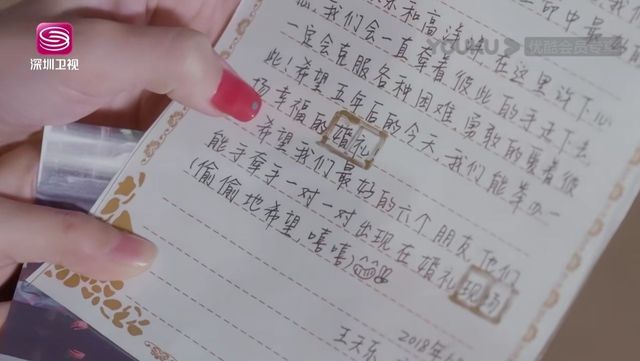 深圳卫视
YOUKU 优酷会员专享
在这里许下心
愿,我们会一直牵着彼此的手走下去,
一定会克服各种困难,勇敢的爱着彼
此!希望五年后的今天,我们能举办一
场幸福的婚礼
希望我们最好的六个朋友,他们
能手牵手一对一对出现在婚礼现场
(偷偷地希望,嘻嘻)
2018年